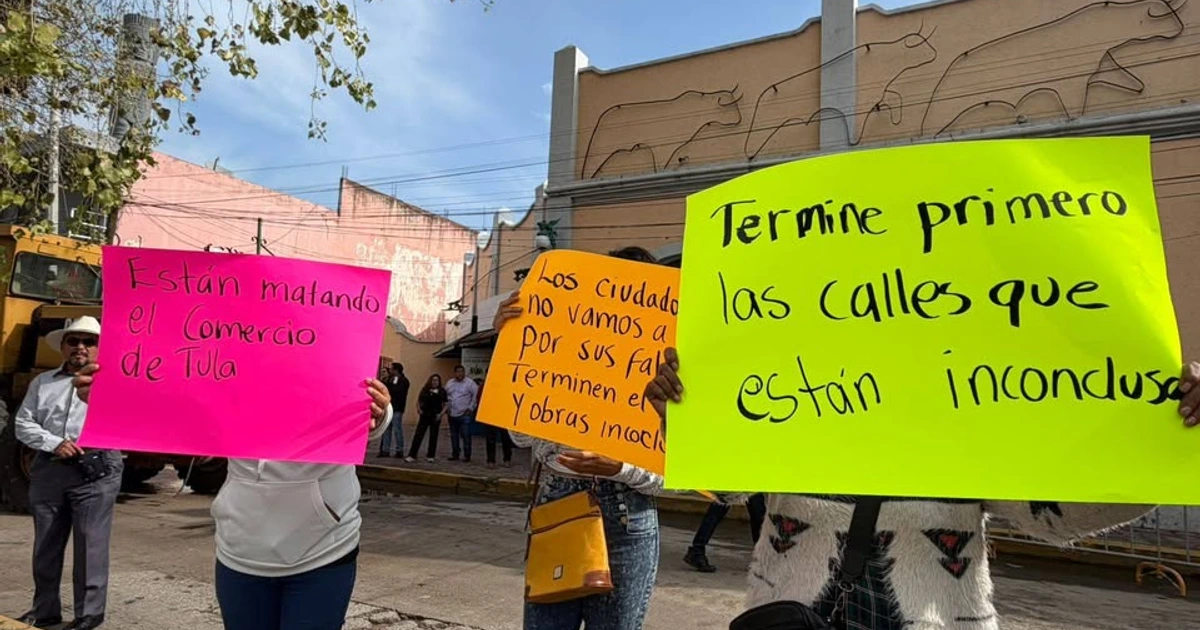 Están matando
el Comercio
de Tula
Los ciudada
no vamos a
por sus fal
Terminen el
y obras incocl
Termine primero
las calles que
están inconclusa